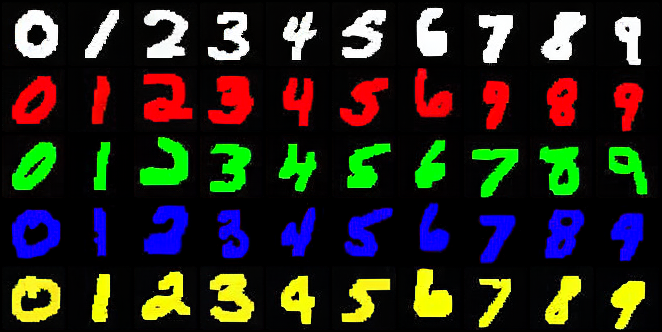 0 1 2 3 4 5 6 7 8 9
0 1 2 3 4 5 6 9 8 9
0 1 2 3 4 5 6 7 8 9
0 1 2 3 4 5 6 7 8 9
0 1 2 3 4 5 6 7 8 9